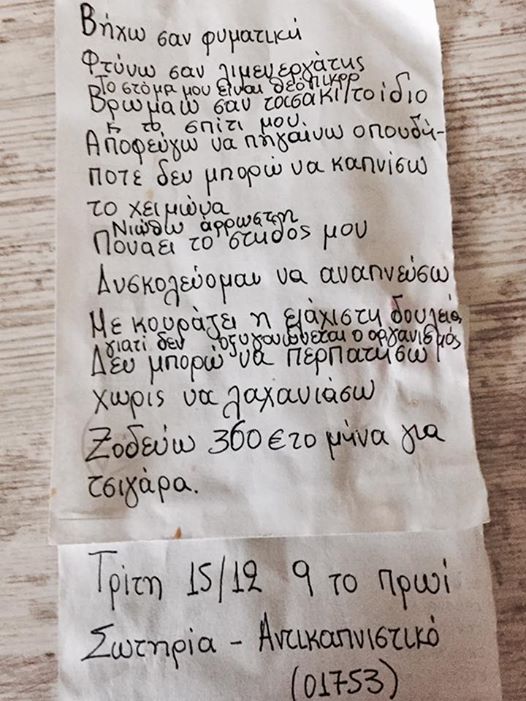 Βήχω σαν φυματική
Φτύνω σαν λιμενεργάτης
Το στόμα μου είναι θεόπικρο
Βρωμάω σαν τασάκι/το ίδιο
κ το σπίτι μου.
Αποφεύγω να πηγαίνω οπουδή-
ποτε δεν μπορώ να καπνίσω
το χειμώνα
Νιώθω άρρωστη
Πονάει το στήθος μου
Δυσκολεύομαι να αναπνεύσω
Με κουράζει η ελάχιστη δουλειά,
γιατί δεν οξυγονώνεται ο οργανισμός
Δεν μπορώ να περπατήσω
χωρίς να λαχανιάσω
Ξοδεύω 360€ το μήνα για
τσιγάρα.
Τρίτη 15/12 9 το πρωί
Σωτηρία - Αντικαπνιστικό
(01753)